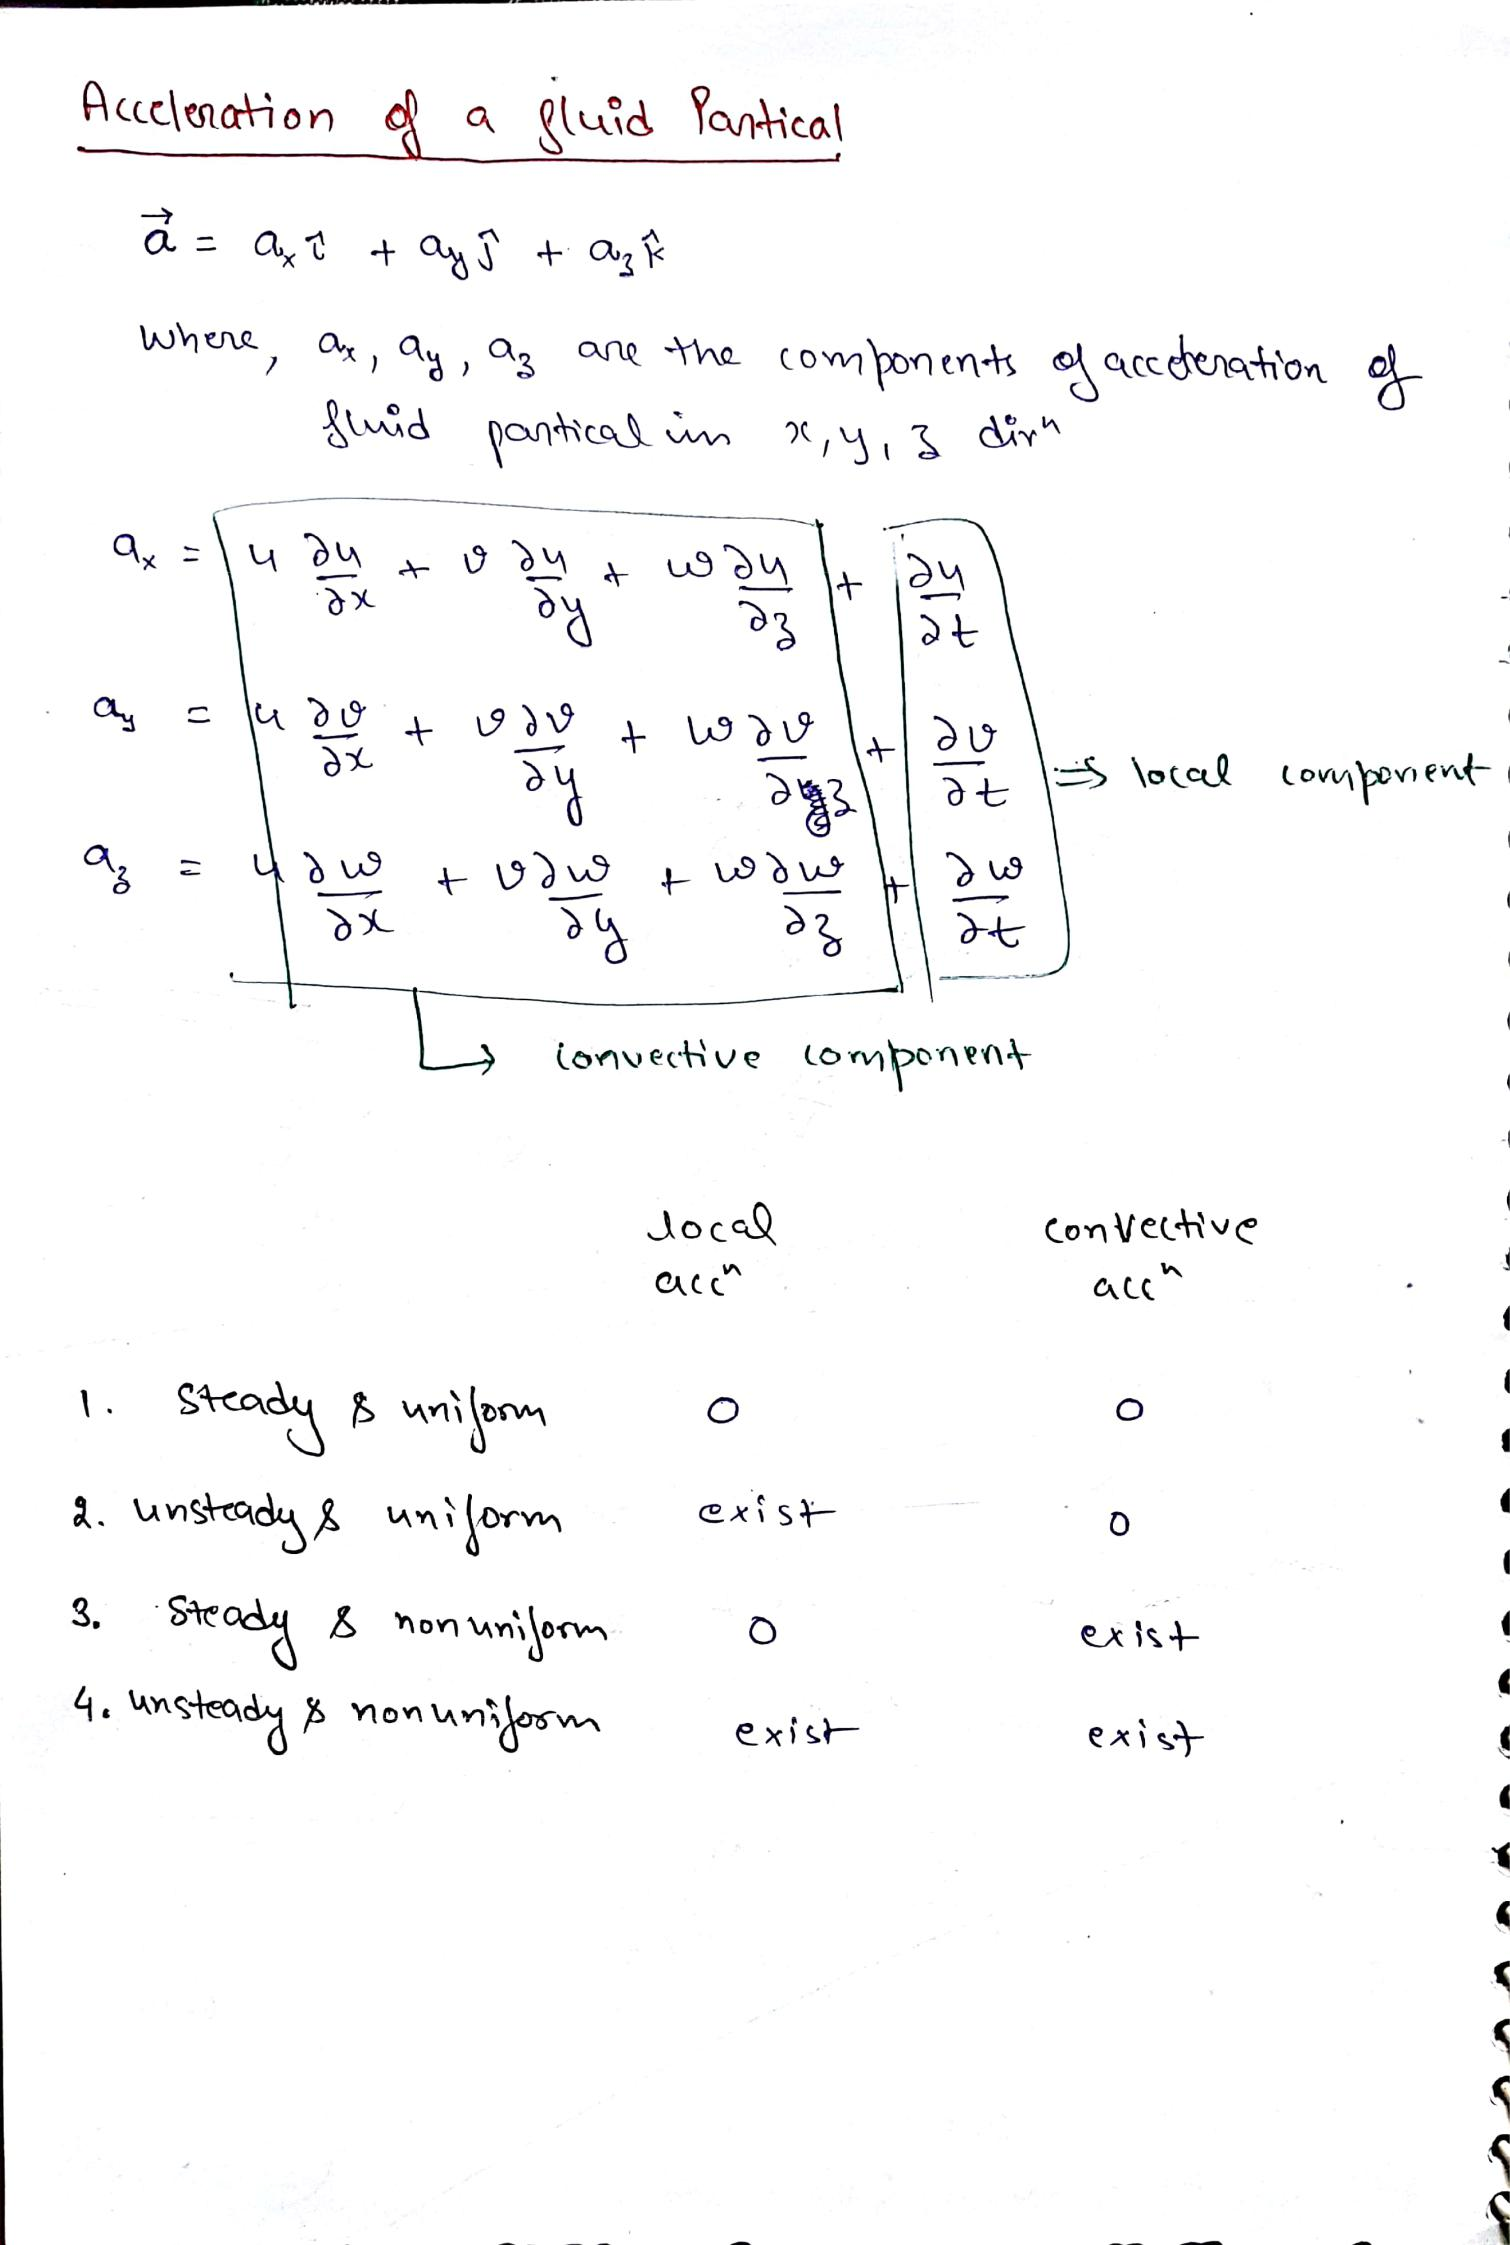 Acceleration of a fluid Partical
a⃗ = aₓ î + a_y ĵ + a_z k̂
where, aₓ, a_y, a_z are the components of acceleration of
fluid partical in x, y, z dirⁿ
aₓ = u ∂u/∂x + v ∂u/∂y + w ∂u/∂z + ∂u/∂t
a_y = u ∂v/∂x + v ∂v/∂y + w ∂v/∂z + ∂v/∂t ⇒ local component
a_z = u ∂w/∂x + v ∂w/∂y + w ∂w/∂z + ∂w/∂t
↳ convective component
local convective
accⁿ accⁿ
1. Steady & uniform 0 0
2. unsteady & uniform exist 0
3. Steady & nonuniform 0 exist
4. unsteady & nonuniform exist exist